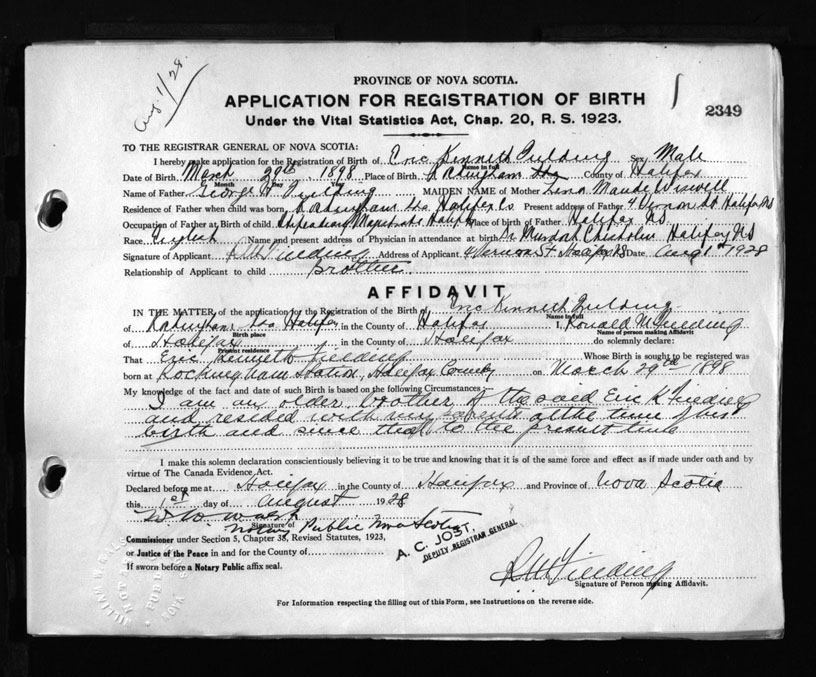 Aug. 1/28.
PROVINCE OF NOVA SCOTIA.
APPLICATION FOR REGISTRATION OF BIRTH
Under the Vital Statistics Act, Chap. 20, R. S. 1923.
2349
TO THE REGISTRAR GENERAL OF NOVA SCOTIA:
I hereby make application for the Registration of Birth of Eric Kenneth Fielding Sex Male
Name in full
Date of Birth March 29th, 1898 Place of Birth County of Halifax
Month Day Year
Name of Father George H Fielding MAIDEN NAME of Mother Lena Maude Wiswell
Residence of Father when child was born Halifax Co Present address of Father 4 Vernon St Halifax NS
Occupation of Father at Birth of child Stipendiary Magistrate Halifax Place of birth of Father Halifax NS
Race English Name and present address of Physician in attendance at birth Dr Murdoch Chisholm Halifax NS
Signature of Applicant R M Fielding Address of Applicant 4 Vernon St Halifax NS Date Aug 1st 1928
Relationship of Applicant to child brother
AFFIDAVIT
IN THE MATTER of the application for the Registration of the Birth of Eric Kenneth Fielding
Name in full
of Halifax in the County of Halifax I, Ronald M Fielding
Birth place Name of person making Affidavit
of Halifax in the County of Halifax do solemnly declare:
Present residence
That Eric Kenneth Fielding Whose Birth is sought to be registered was
born at Rockingham Station, Halifax County on March 29th 1898
My knowledge of the fact and date of such Birth is based on the following Circumstances:
I am an older brother of the said Eric K Fielding
and resided with my parents at the time of his
birth and since that to the present time
I make this solemn declaration conscientiously believing it to be true and knowing that it is of the same force and effect as if made under oath and by
virtue of The Canada Evidence Act.
Declared before me at Halifax in the County of Halifax and Province of Nova Scotia
this 1st day of August 1928
W W Walsh
Signature of
Notary Public Nova Scotia
Commissioner under Section 5, Chapter 38, Revised Statutes, 1923,
or Justice of the Peace in and for the County of
If sworn before a Notary Public affix seal.
A. C. JOST.
DEPUTY REGISTRAR GENERAL
R M Fielding
Signature of Person making Affidavit.
For Information respecting the filling out of this Form, see Instructions on the reverse side.